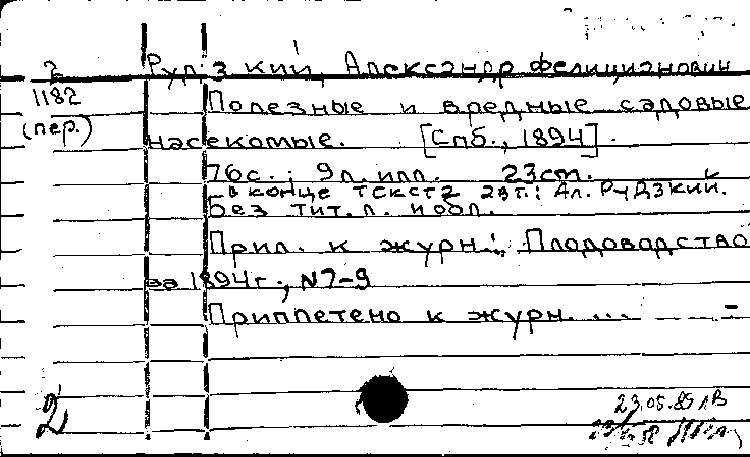 2
1182
(пер.)
Рудзкий, Александр Фелицианович
Полезные и вредные садовые
насекомые. [Спб., 1894].
76с.; 9л.илл. 23см.
В конце текста авт.: Ал. Рудзкий.
Без тит. л. и обл.
Прил. к журн.: Плодоводство
за 1894г., N7-9
Приплетено к журн. ...
2
23.05.89 ЛВ